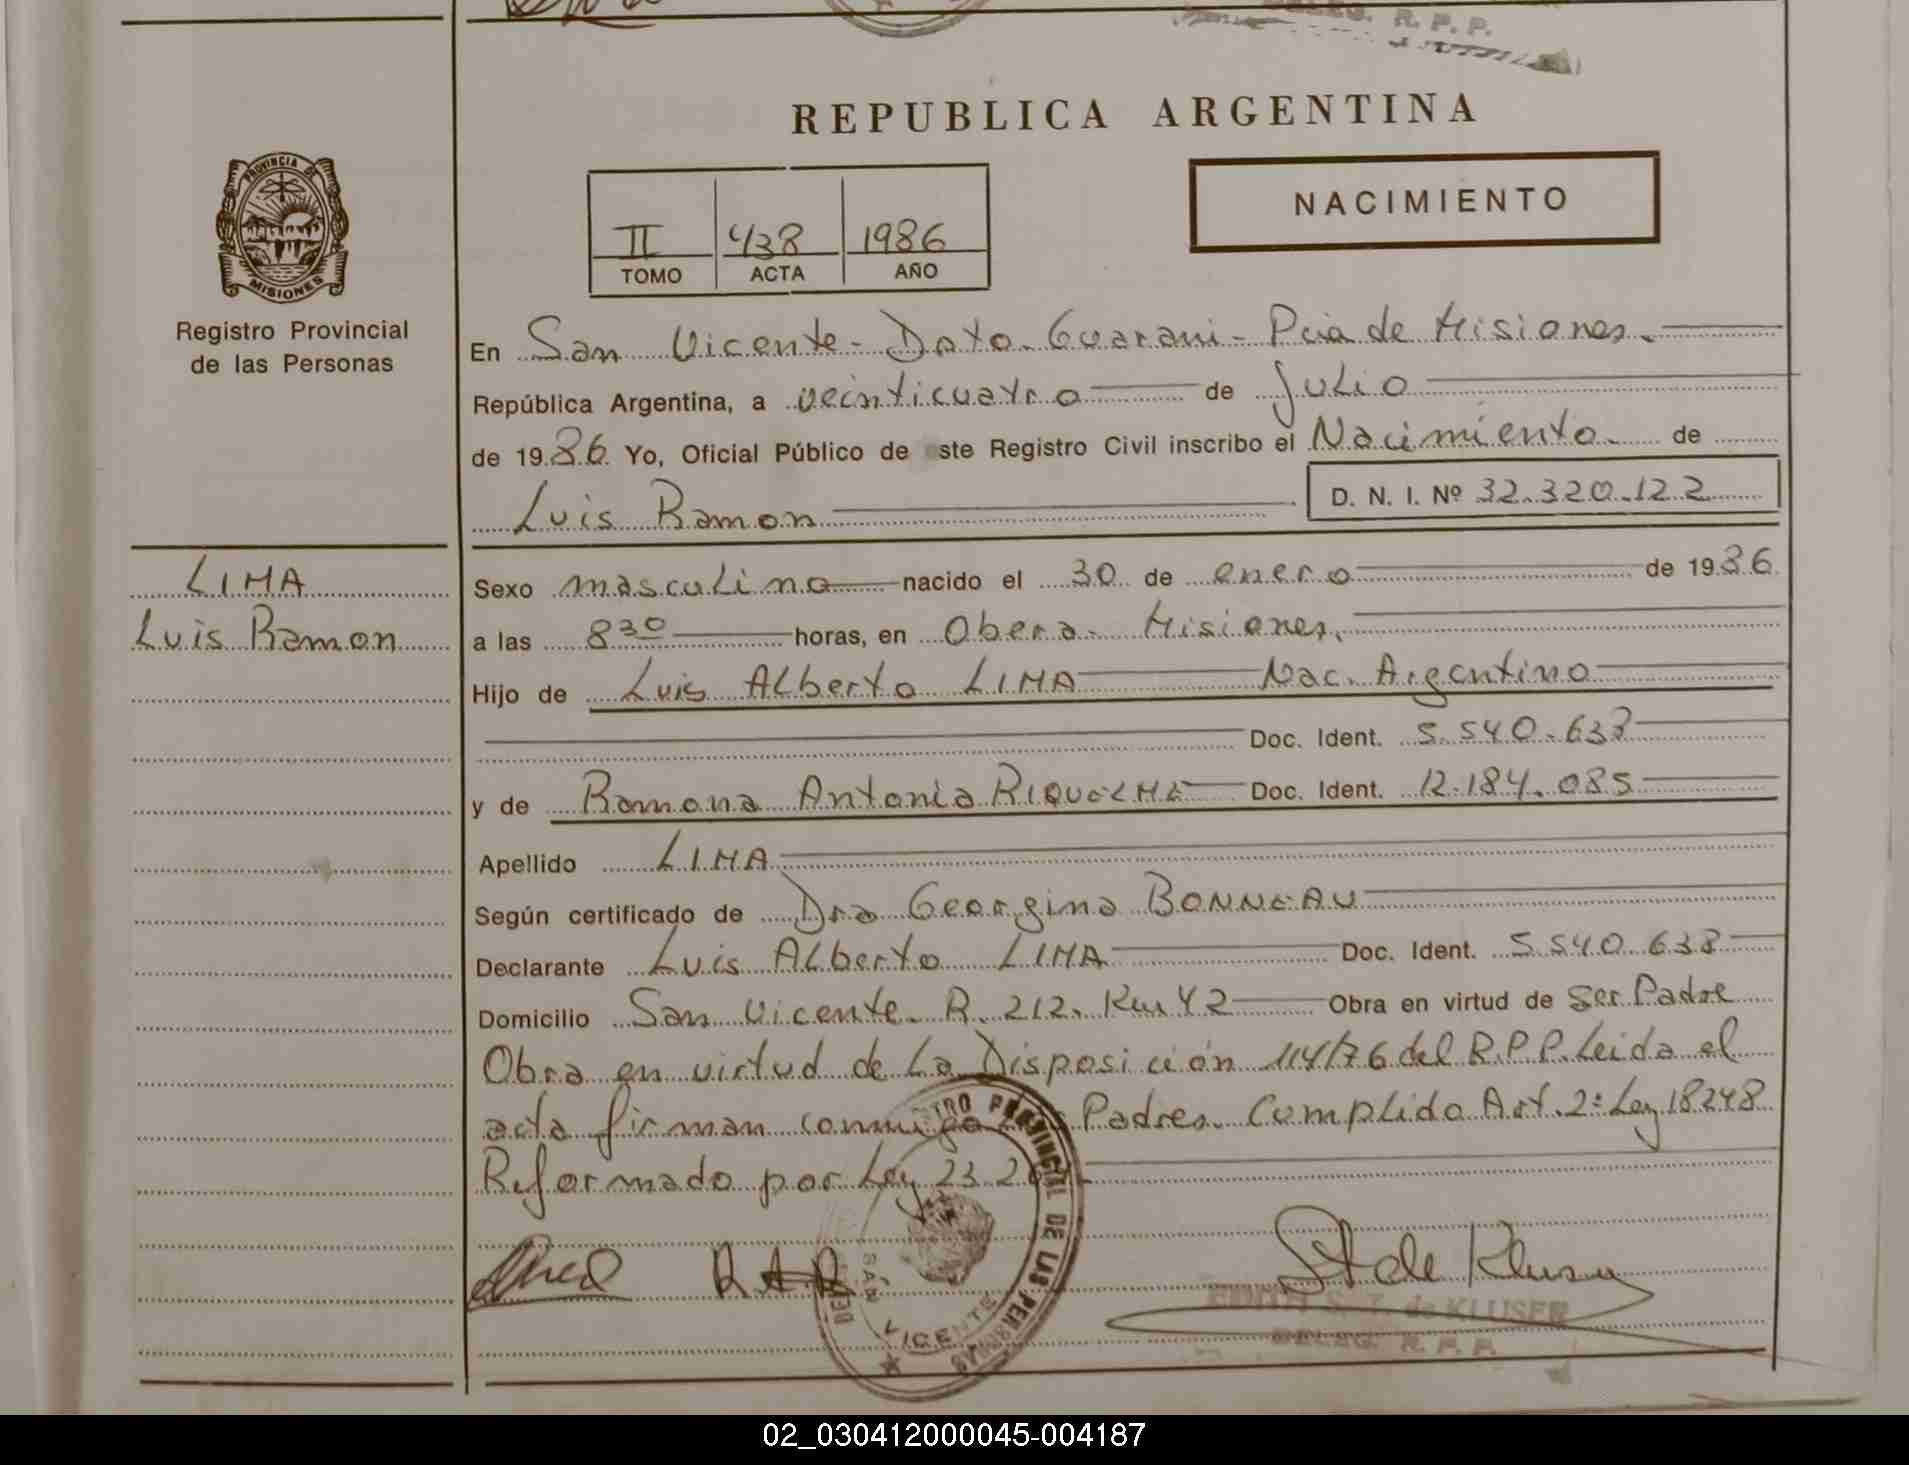 DELEG. R. P. P.
REPUBLICA ARGENTINA
PROVINCIA DE
MISIONES
Registro Provincial
de las Personas
II 438 1986
TOMO ACTA AÑO
NACIMIENTO
En San Vicente - Dpto. Guarani - Pcia de Misiones.
República Argentina, a veinticuatro de Julio
de 1986 Yo, Oficial Público de ste Registro Civil inscribo el Nacimiento de
Luis Ramon D. N. I. Nº 32.320.122
LIMA
Luis Ramon
Sexo masculino nacido el 30 de enero de 1986
a las 8 30 horas, en Obera - Misiones.
Hijo de Luis Alberto LIMA Nac. Argentino
Doc. Ident. 5.540.638
y de Ramona Antonia RIQUELME Doc. Ident. 12.184.085
Apellido LIMA
Según certificado de Dra Georgina BONNEAU
Declarante Luis Alberto LIMA Doc. Ident. 5.540.638
Domicilio San Vicente. R. 212. Km 42 Obra en virtud de ser Padre
Obra en virtud de la Disposición 114/76 del R.P.P. Leida el
acta firman conmigo Padres. Cumplido Art. 2º Ley 18248
Reformado por Ley 23.2
REGISTRO PROVINCIAL DE LAS PERSONAS
SAN VICENTE
S T de Kluser
EDITH S. T. de KLUSER
DELEG. R. P. P.
02_030412000045-004187